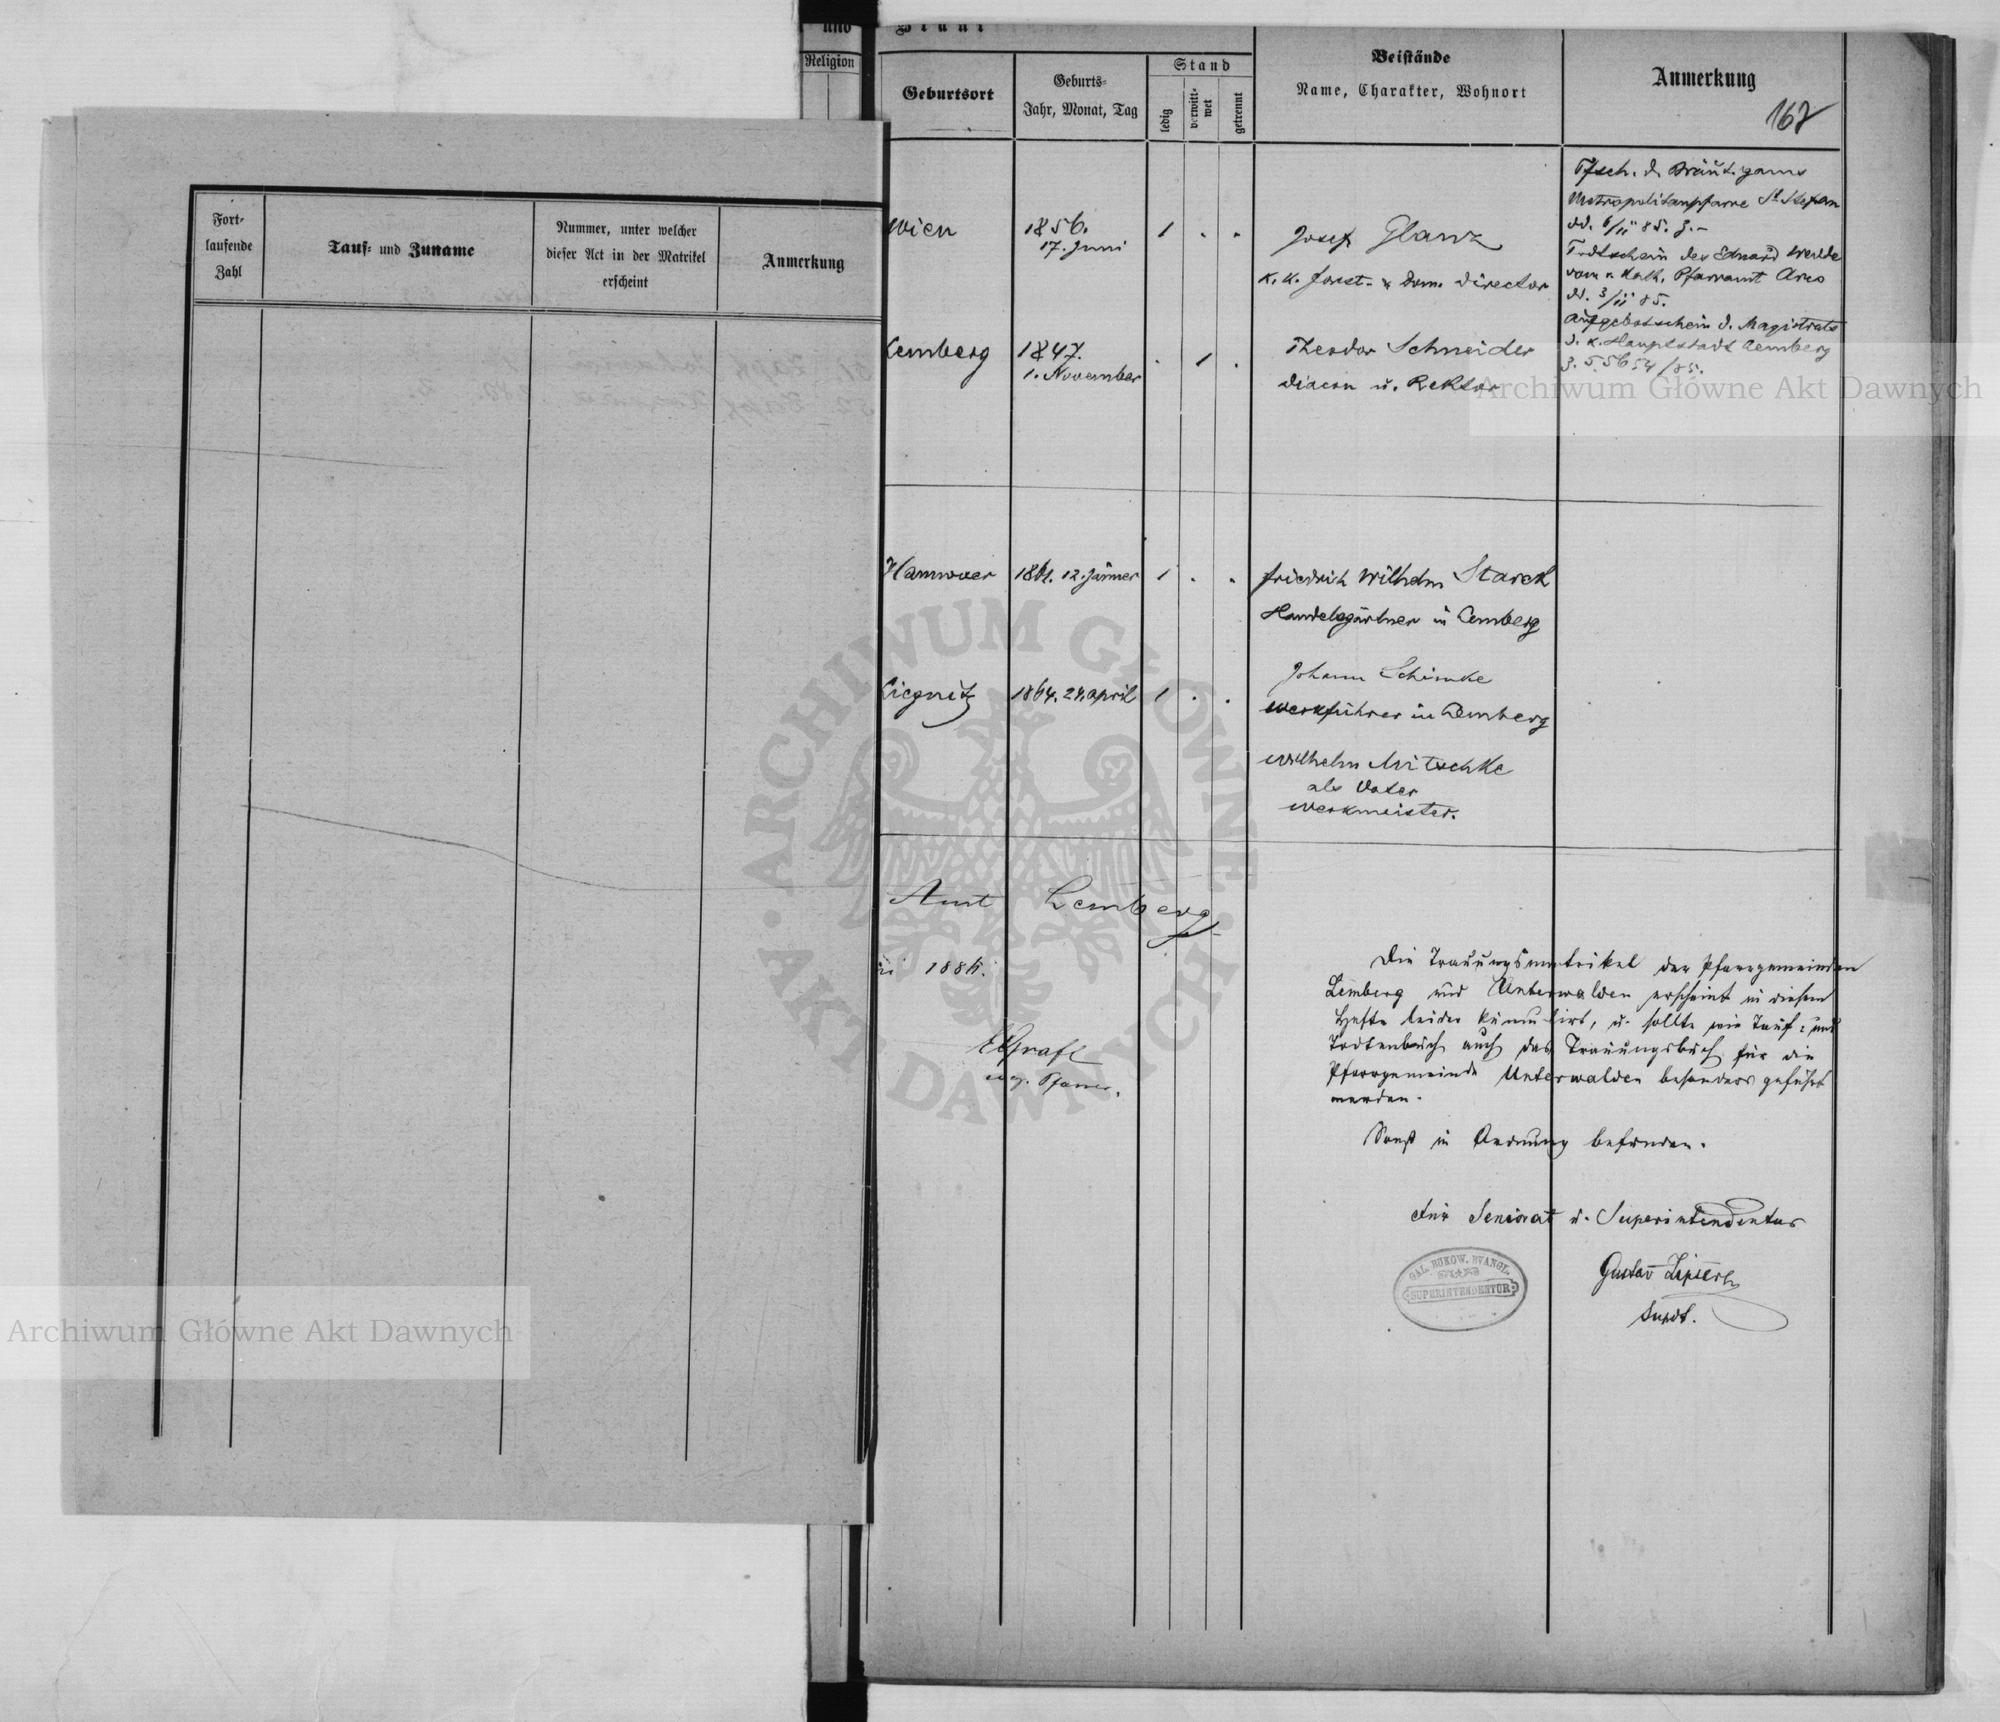 und
Religion
Braut
Geburtsort
Geburts-
Jahr, Monat, Tag
Stand
ledig
verwitt-
wet
getrennt
Beistände
Name, Charakter, Wohnort
Anmerkung
167
Fort-
laufende
Zahl
Tauf- und Zuname
Nummer, unter welcher
dieser Act in der Matrikel
erscheint
Anmerkung
Wien
1856.
17. Juni
1 . .
Josef Glanz
k. k. Forst- & Dom. Director
Tfsch. d. Bräutigams
Metropolitanpfarre St. Stefan
dd. 6/11 85. Z.-
Todtschein des Eduard
vom r. kath. Pfarramt Arco
dd. 3/11 85.
Aufgebotschein d. Magistrats
d. k. Hauptstadt Lemberg
Z. 55654/85.
Lemberg
1847.
1. November
. 1 .
Theodor Schneider
Diacon u. Rektor
Hannover
1861. 12. Jänner
1 . .
Friedrich Wilhelm Starck
Handelsgärtner in Lemberg
Liegnitz
1864. 24. April
1 . .
Johann Schimke
Werkführer in Lemberg
Wilhelm Mitschke
als Vater
Werkmeister.
Amt Lemberg
1886.
EGrafl
ev. Pfarrer.
Die Trauungsmatrikel der Pfarrgemeinden
Lemberg und Unterwalden erscheint in diesem
Hefte leider kumulirt, u. sollte wie Tauf- und
Todtenbuch auch das Trauungsbuch für die
Pfarrgemeinde Unterwalden besonders geführt
werden.
Sonst in Ordnung befunden.
Für Seniorat u. Superintendentur
GAL. BUKOW. EVANGL.
SUPERINTENDENTUR
Gustav
Supdt.
Archiwum Główne Akt Dawnych
ARCHIWUM GŁÓWNE AKT DAWNYCH
Archiwum Główne Akt Dawnych